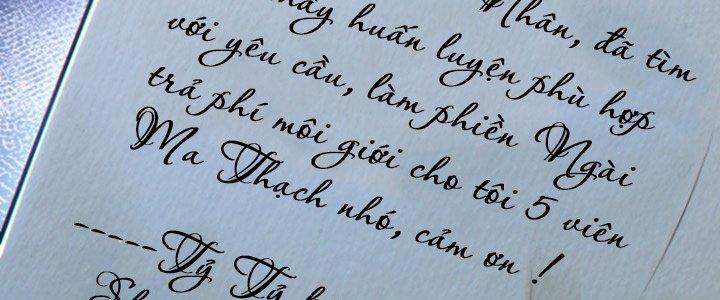 Nhân, đã tìm
huấn luyện phù hợp
với yêu cầu, làm phiền Ngài
trả phí môi giới cho tôi 5 viên
Ma Thạch nhó, cảm ơn !
-----Tỷ Tỷ